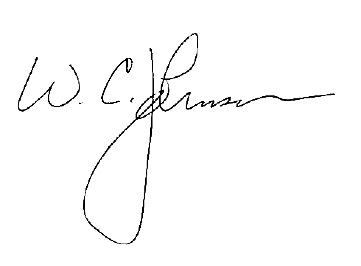 W. C. Johnson